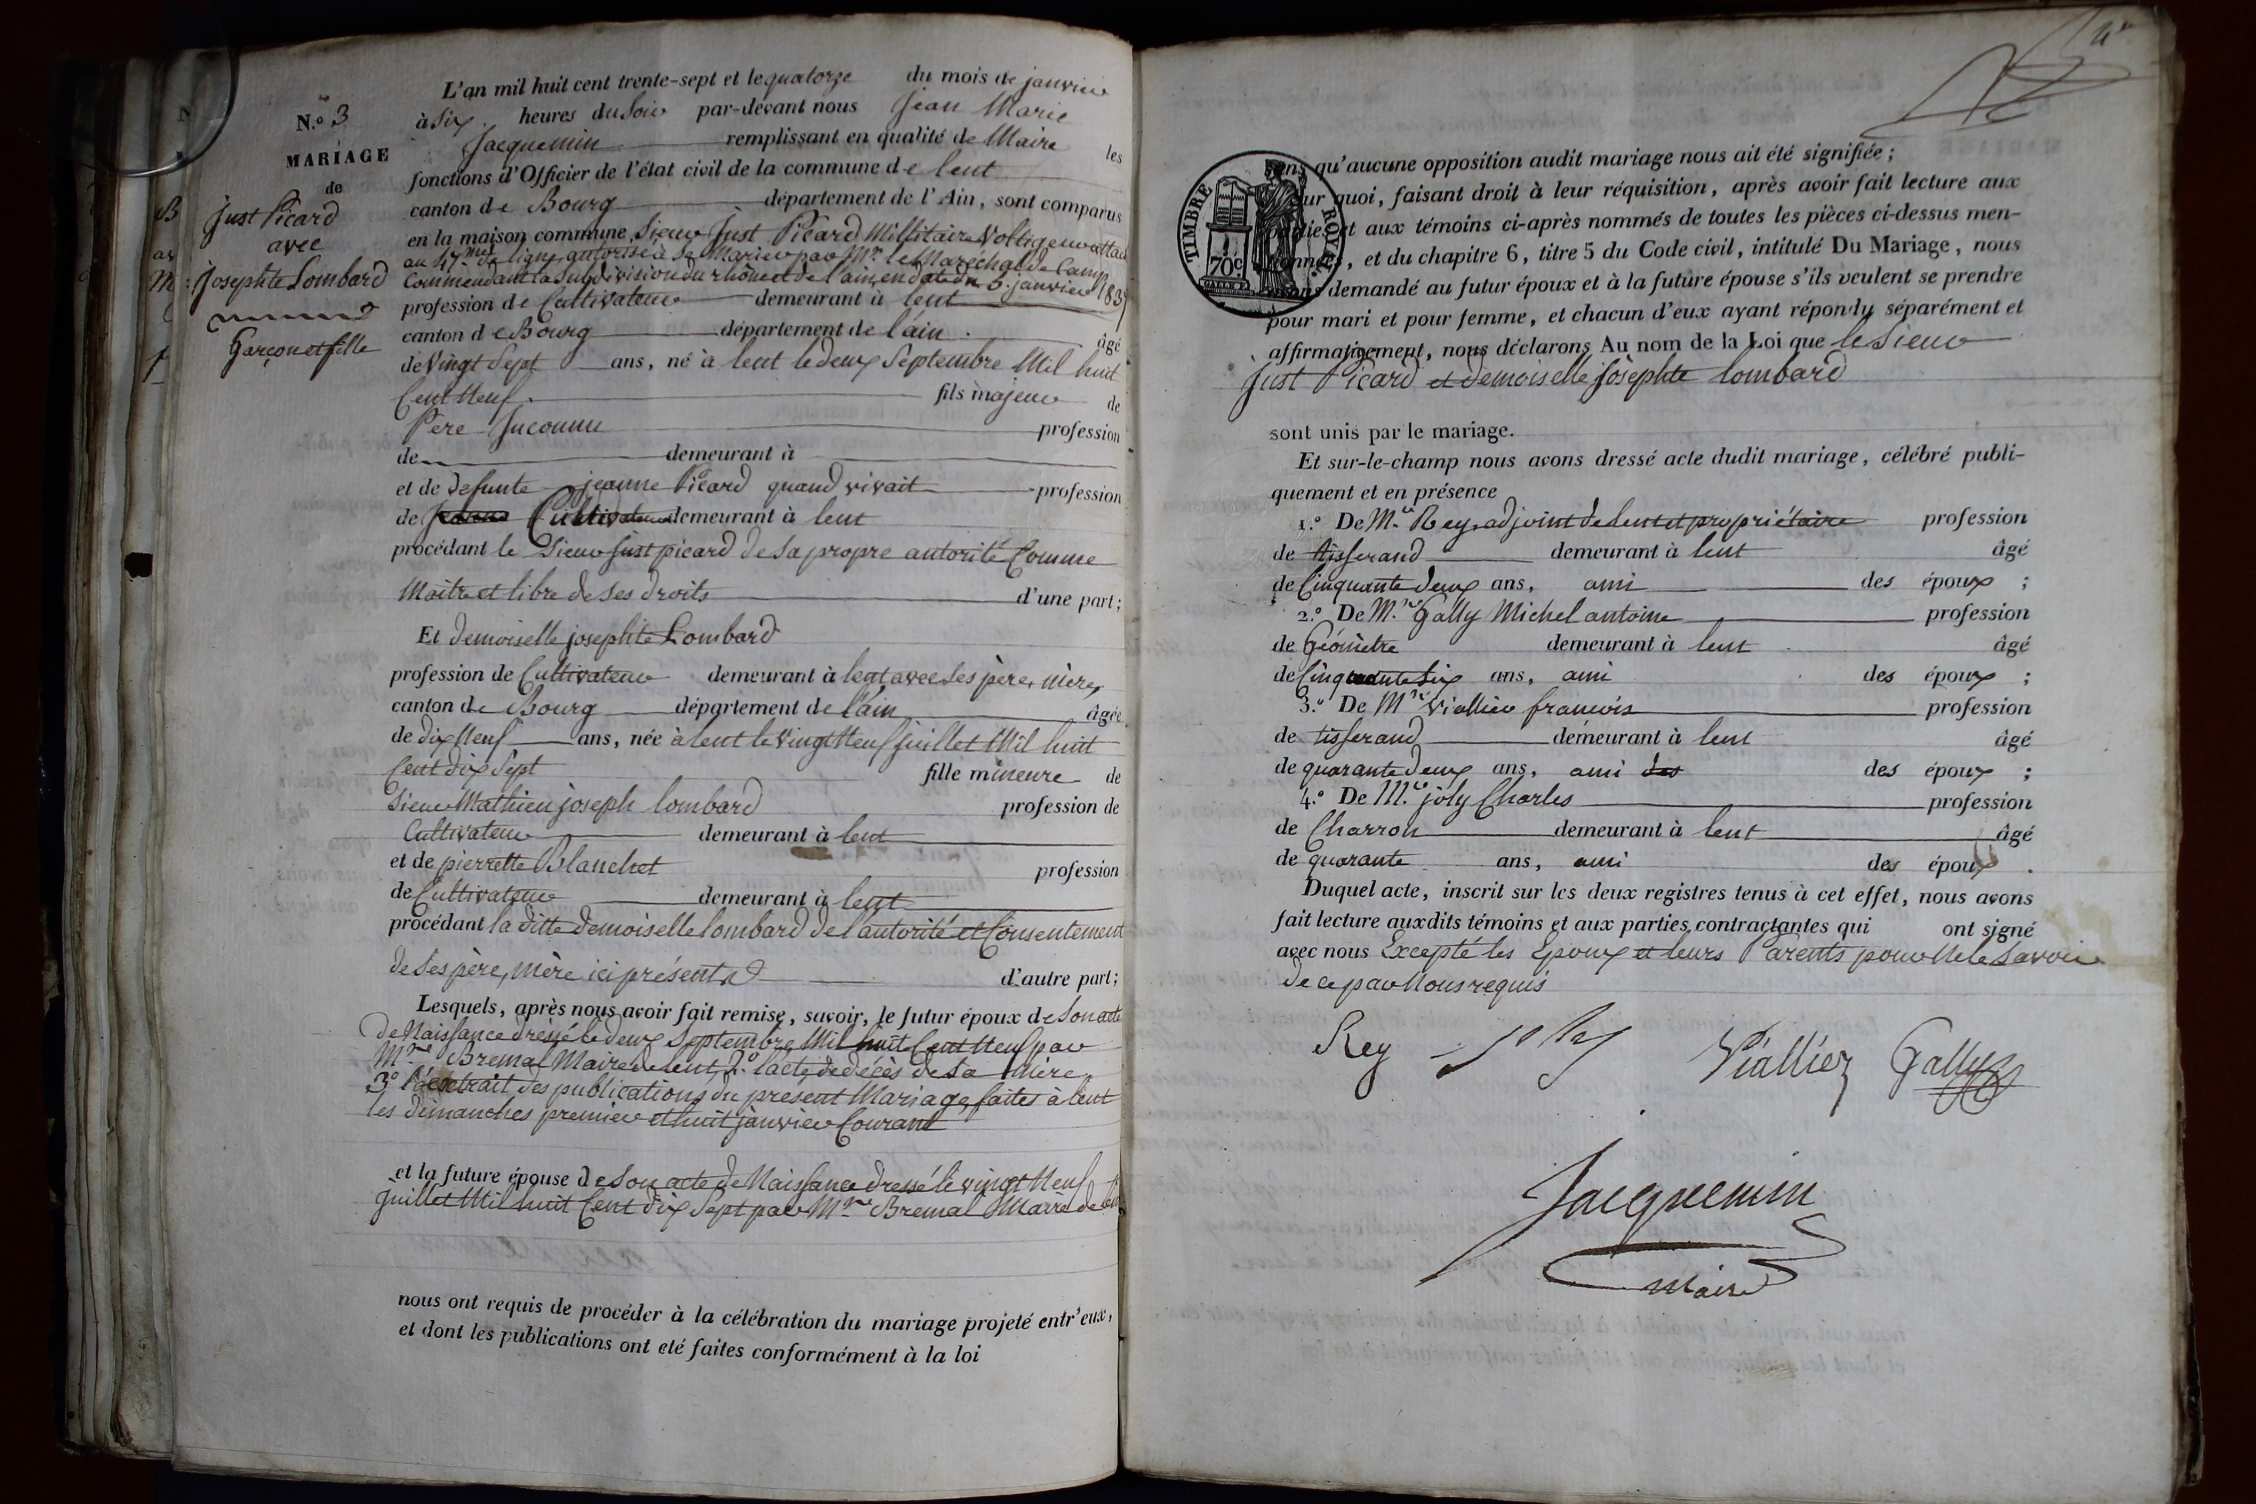 N.o 3
MARIAGE
de
Just Picard
avec
josephte Lombard
Garçon et fille
L'an mil huit cent trente-sept et le quatorze du mois de janvier
à Six heures du Soir par-devant nous Jean Marie
Jacquemin remplissant en qualité de Maire les
fonctions d'Officier de l'état civil de la commune de lent
canton de Bourg département de l'Ain, sont comparus
en la maison commune, Sieur Just Picard Millitaire Voltigeur
au 47me de ligne autorisé à se Marier par Mr le Maréchal de Camp
Commendant la Subdivision du rhône et de l'ain, en date du 5 janvier 1837
profession de Cultivateur demeurant à lent
canton de Bourg département de l'ain. âgé
de Vingt Sept ans, né à lent le deux Septembre Mil huit
Cent Neuf. fils majeur de
Père Inconnu profession
de demeurant à
et de defunte jeanne Picard quand vivait profession
de Cultivateur demeurant à lent
procédant le Sieur just picard de sa propre autorité Comme
Maitre et libre de ses droits d'une part;
Et demoiselle josephte Lombard
profession de Cultivateur demeurant à lent avec Ses père, mère,
canton de Bourg département de l'ain âgée
de dix Neuf ans, née à lent le Vingt Neuf juillet Mil huit
Cent dix Sept fille mineure de
Sieur Mathieu joseph lombard profession de
Cultivateur demeurant à lent
et de pierrette Blanchet profession
de Cultivateur demeurant à lent
procédant la ditte demoiselle lombard de l'autorité et Consentement
de Ses père, mère ici présents d'autre part;
Lesquels, après nous avoir fait remise, savoir, le futur époux de Son acte
de Naissance dressé le deux Septembre Mil huit Cent Neuf par
Mr Bremal Maire de lent, 2o l'acte de décès de Sa mère,
3o l'extrait des publications du présent Mariage, faites à lent
les dimanches premier et huit janvier Courant
et la future épouse de Son acte de Naissance dressé le vingt Neuf
juillet Mil huit Cent dix Sept par Mr Bremal Maire de lent
nous ont requis de procéder à la célébration du mariage projeté entr'eux,
et dont les publications ont eté faites conformément à la loi
4e
TIMBRE ROYAL
70c
sans qu'aucune opposition audit mariage nous ait été signifiée;
sur quoi, faisant droit à leur réquisition, après avoir fait lecture aux
et aux témoins ci-après nommés de toutes les pièces ci-dessus men-
, et du chapitre 6, titre 5 du Code civil, intitulé Du Mariage, nous
avons demandé au futur époux et à la future épouse s'ils veulent se prendre
pour mari et pour femme, et chacun d'eux ayant répondu séparément et
affirmativement, nous déclarons Au nom de la Loi que le Sieur
Just Picard et demoiselle josephte lombard
sont unis par le mariage.
Et sur-le-champ nous avons dressé acte dudit mariage, célébré publi-
quement et en présence
1.o De M.r Rey, adjoint de lent et propriétaire profession
de tisserand demeurant à lent âgé
de Cinquante deux ans, ami des époux;
2.o De M.r Gally Michel antoine profession
de Géomètre demeurant à lent âgé
de Cinquante Six ans, ami des époux;
3.o De Mr Viallier francois profession
de tisserand demeurant à lent âgé
de quarante deux ans, ami des des époux;
4.o De M.r joly Charles profession
de Charron demeurant à lent âgé
de quarante ans, ami des époux.
Duquel acte, inscrit sur les deux registres tenus à cet effet, nous avons
fait lecture auxdits témoins et aux parties contractantes qui ont signé
avec nous Excepté les Epoux et leurs Parents pour Ne le Savoir
de ce par Nous requis
Rey joly Viallier Gally
Jacquemin
maire